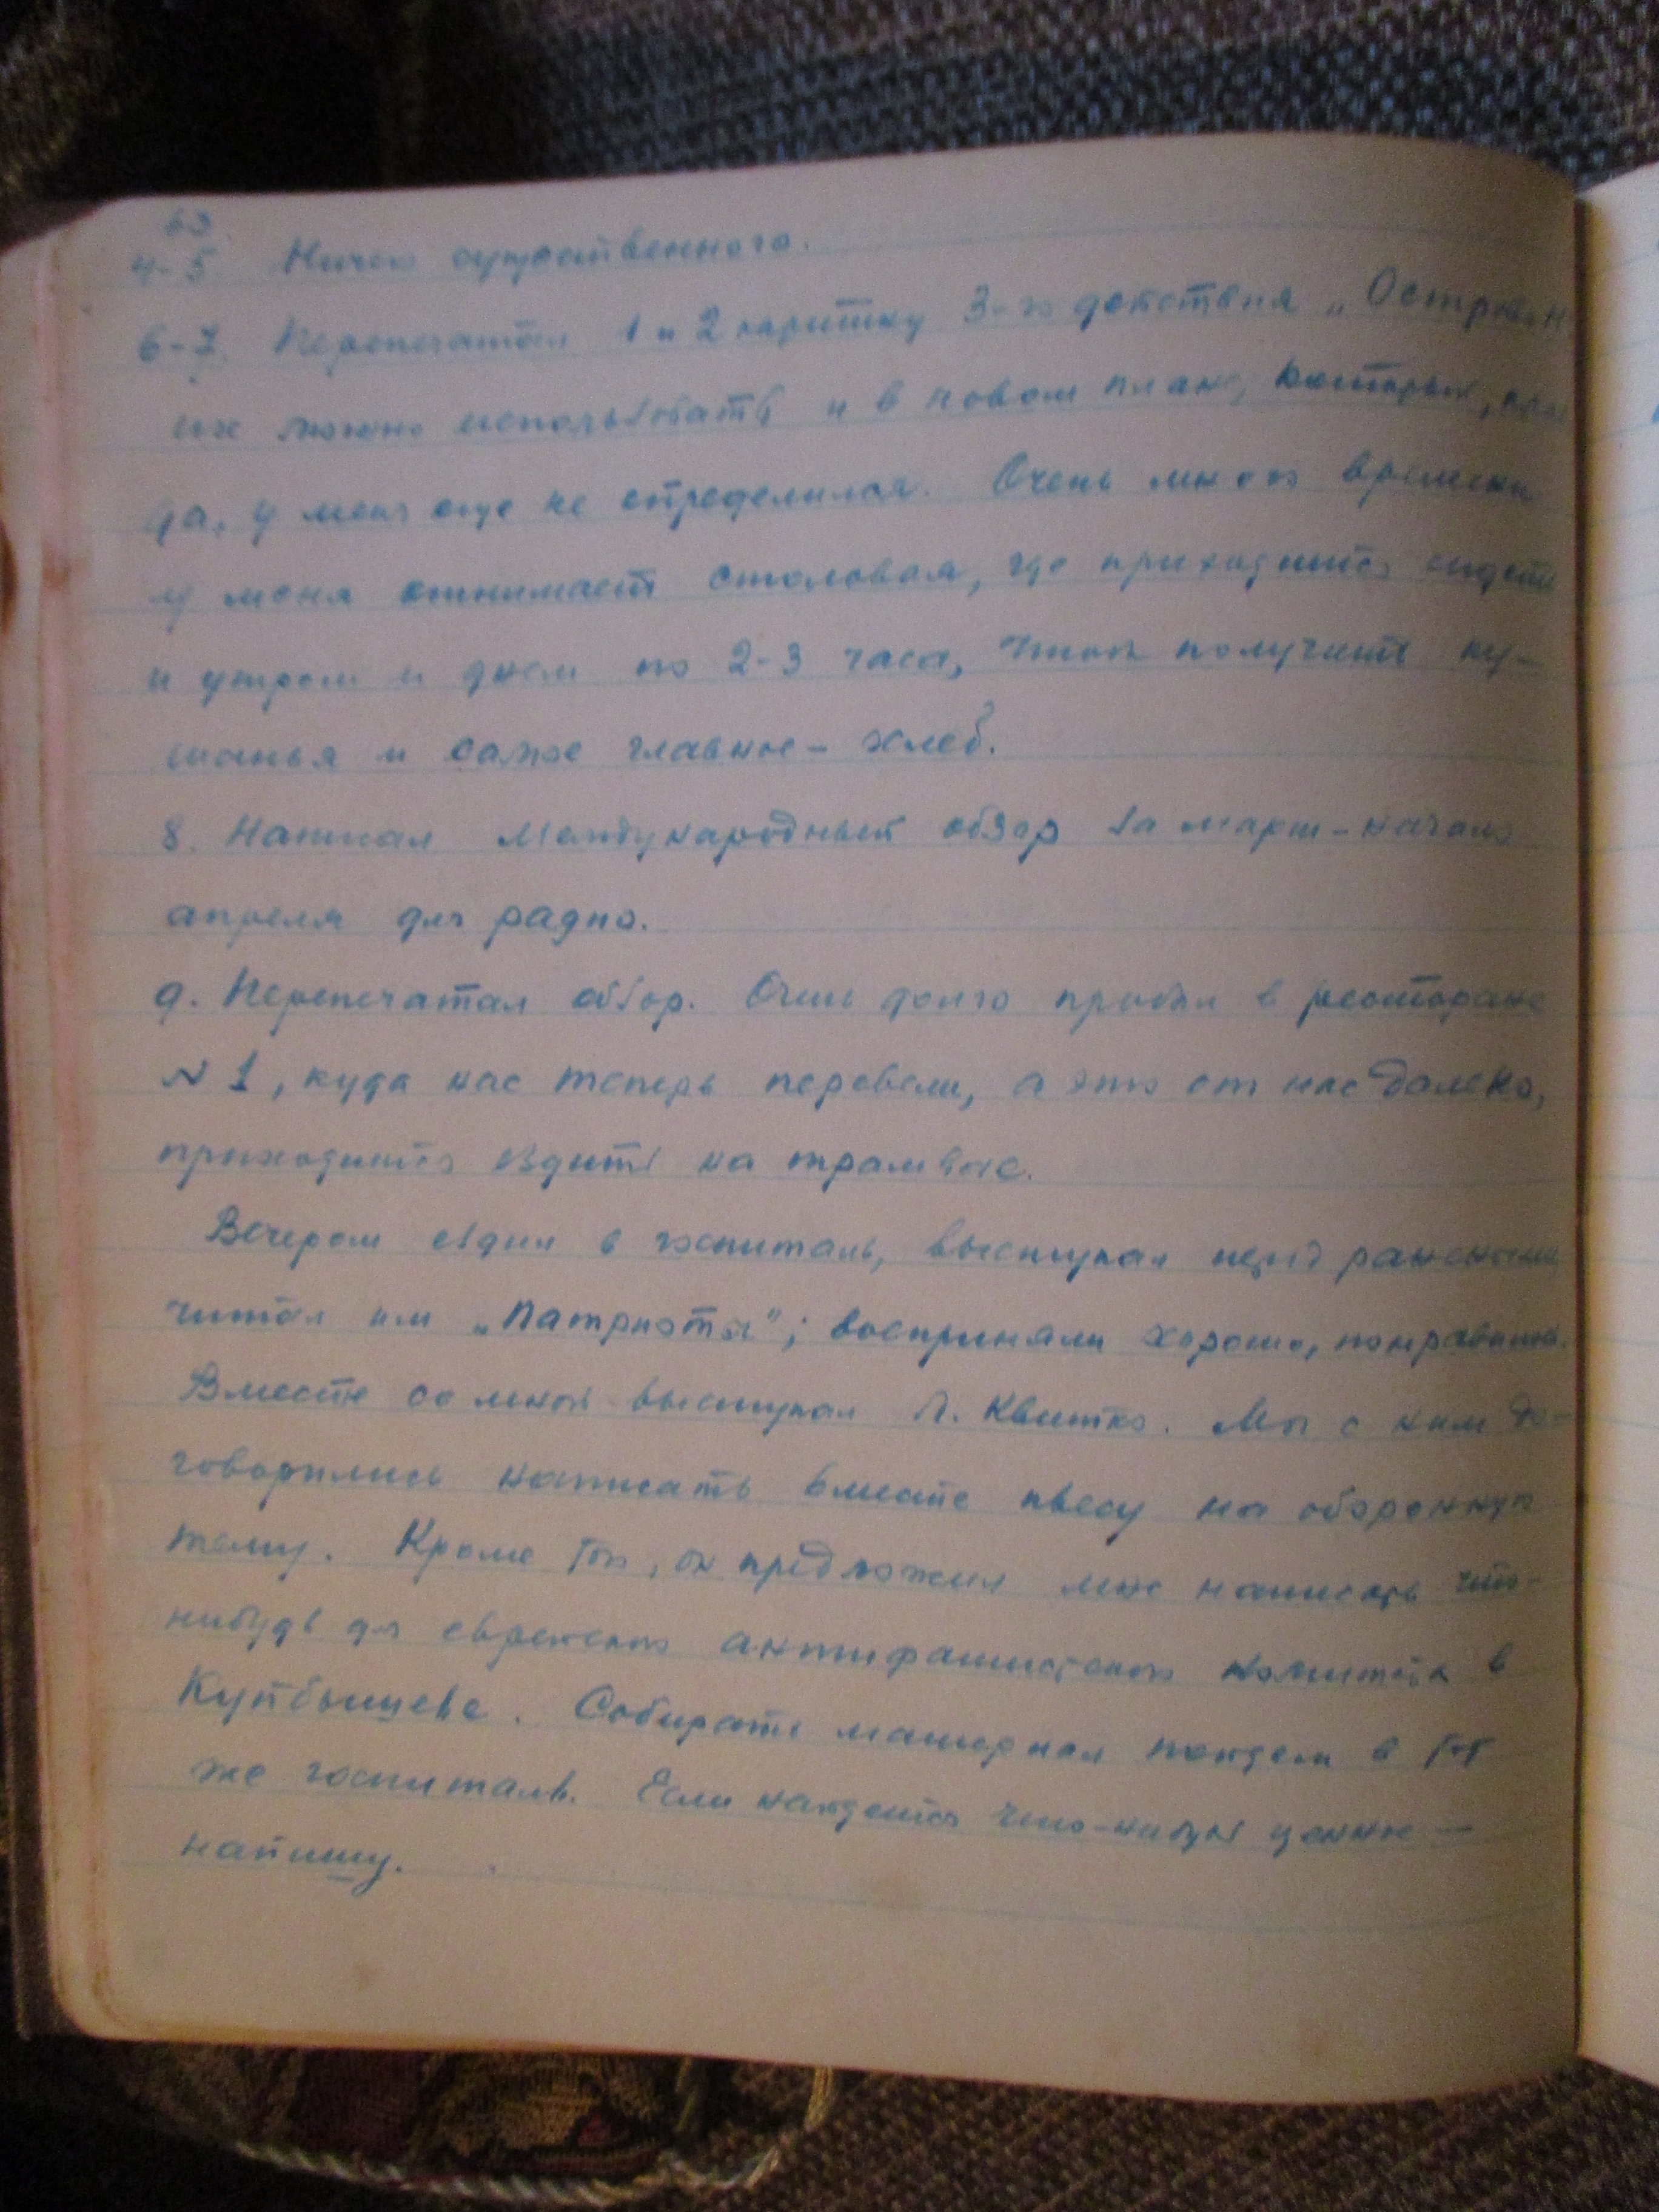 63
4-5 Ничего существенного.
6-7. Перепечатал 1 и 2 картину 3-го действия „Остров
их можно использовать и в новом плане, который,
да, у меня еще не определился. Очень много времени
у меня отнимает столовая, где приходится сидеть
и утром и днем по 2-3 часа, чтоб получить ку-
шанья и самое главное - хлеб.
8. Написал международный обзор за март-начало
апреля для радио.
9. Перепечатал обзор. Очень долго пробыл в ресторане
№1, куда нас теперь перевели, а это от нас далеко,
приходится ездить на трамвае.
Вечером ездил в госпиталь, выступал перед ранеными
читал им „Патриота"; восприняли хорошо, понравилось.
Вместе со мной выступал Л. Квитко. Мы с ним до-
говорились написать вместе пьесу на оборонную
тему. Кроме того, он предложил мне написать что-
нибудь для еврейского антифашистского комитета в
Куйбышеве. Собирать материал пойдем в тот
же госпиталь. Если найдется что-нибудь ценное —
напишу.